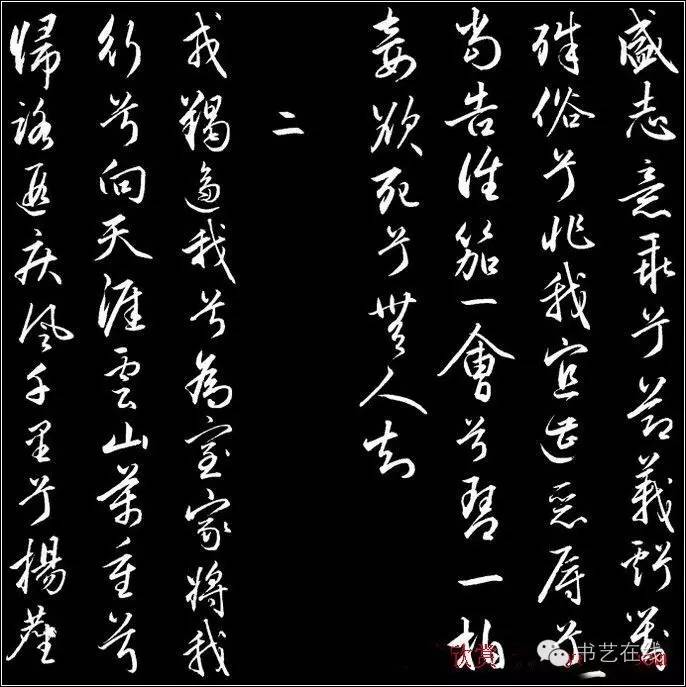 盛志意乖兮節義虧對
殊俗兮非我宜遭惡辱兮
當告誰笳一會兮琴一拍
欲死兮無人知
二
戎羯逼我兮為室家將我
行兮向天涯雲山萬重兮
歸路遐疾風千里兮楊塵
欣赏
书艺在线